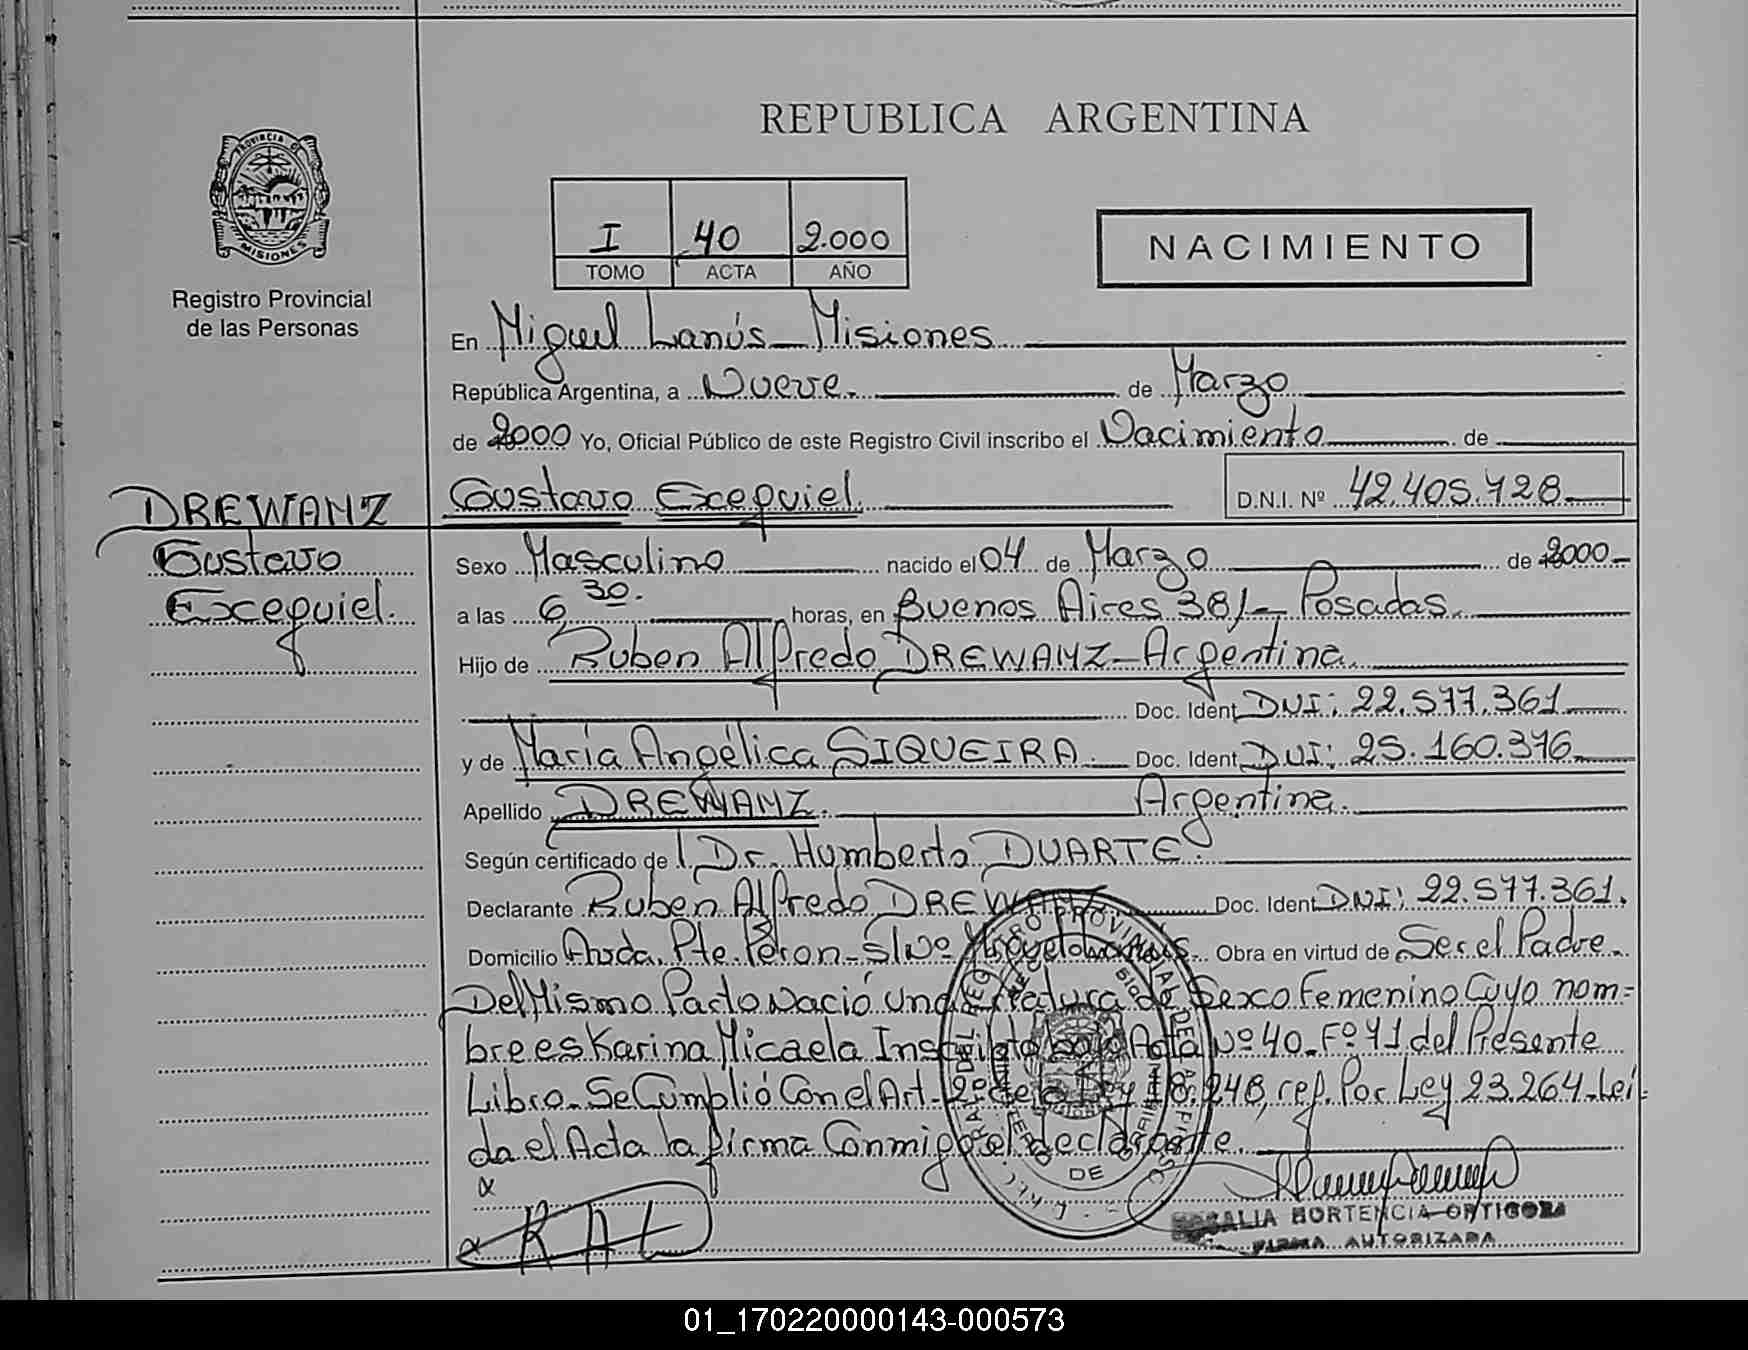 REPUBLICA ARGENTINA
PROVINCIA DE
MISIONES
Registro Provincial
de las Personas
I 40 2.000
TOMO ACTA AÑO
NACIMIENTO
En Miguel Lanús - Misiones
República Argentina, a Nueve. de Marzo
de 2000 Yo, Oficial Público de este Registro Civil inscribo el Nacimiento de
DREWANZ Gustavo Excequiel. D.N.I. Nº 42.405.728
Gustavo
Excequiel.
Sexo Masculino nacido el 04 de Marzo de 2000
a las 6,30. horas, en Buenos Aires 381 - Posadas.
Hijo de Ruben Alfredo DREWANZ - Argentina.
Doc. Ident DNI: 22.577.361
y de María Angélica SIQUEIRA. Doc. Ident DNI: 25.160.376
Apellido DREWANZ. Argentina.
Según certificado de Dr. Humberto DUARTE.
Declarante Ruben Alfredo DREWANZ Doc. Ident DNI: 22.577.361.
Domicilio Avda. Pte. Peron - S/Nº Miguel Lanús. Obra en virtud de Ser el Padre.
Del Mismo Parto Nació una Criatura de Sexo Femenino Cuyo nom=
bre es Karina Micaela Inscripta bajo Acta Nº 40. Fº 41 del Presente
Libro. Se Cumplió Con el Art. 2º de la Ley 18.248, ref. Por Ley 23.264. Leí-
da el Acta la firma Conmigo el declarante.
DE
HORTENCIA ORTIGOZA
FIRMA AUTORIZADA
01_170220000143-000573